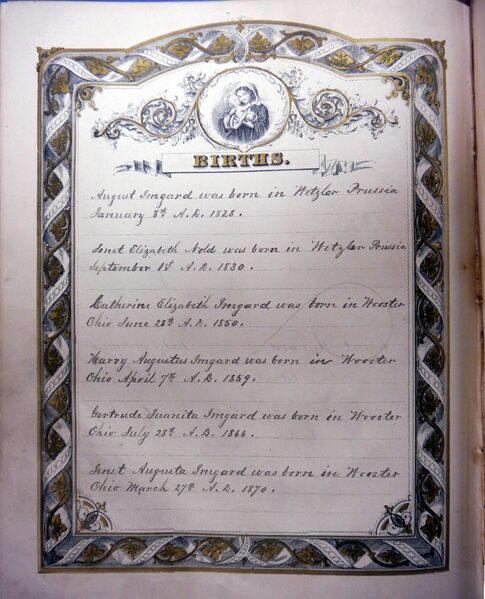 BIRTHS.
August Imgard was born in Wetzlar Prussia
January 8th A.D. 1828.
Jenet Elizabeth Nold was born in Wetzlar Prussia
September 1st A.D. 1830.
Catherine Elizabeth Imgard was born in Wooster
Ohio June 28th A.D. 1850.
Harry Augustus Imgard was born in Wooster
Ohio April 7th A.D. 1859.
Gertrude Juanita Imgard was born in Wooster
Ohio July 28th A.D. 1866.
Jenet Augusta Imgard was born in Wooster
Ohio March 27th A.D. 1870.